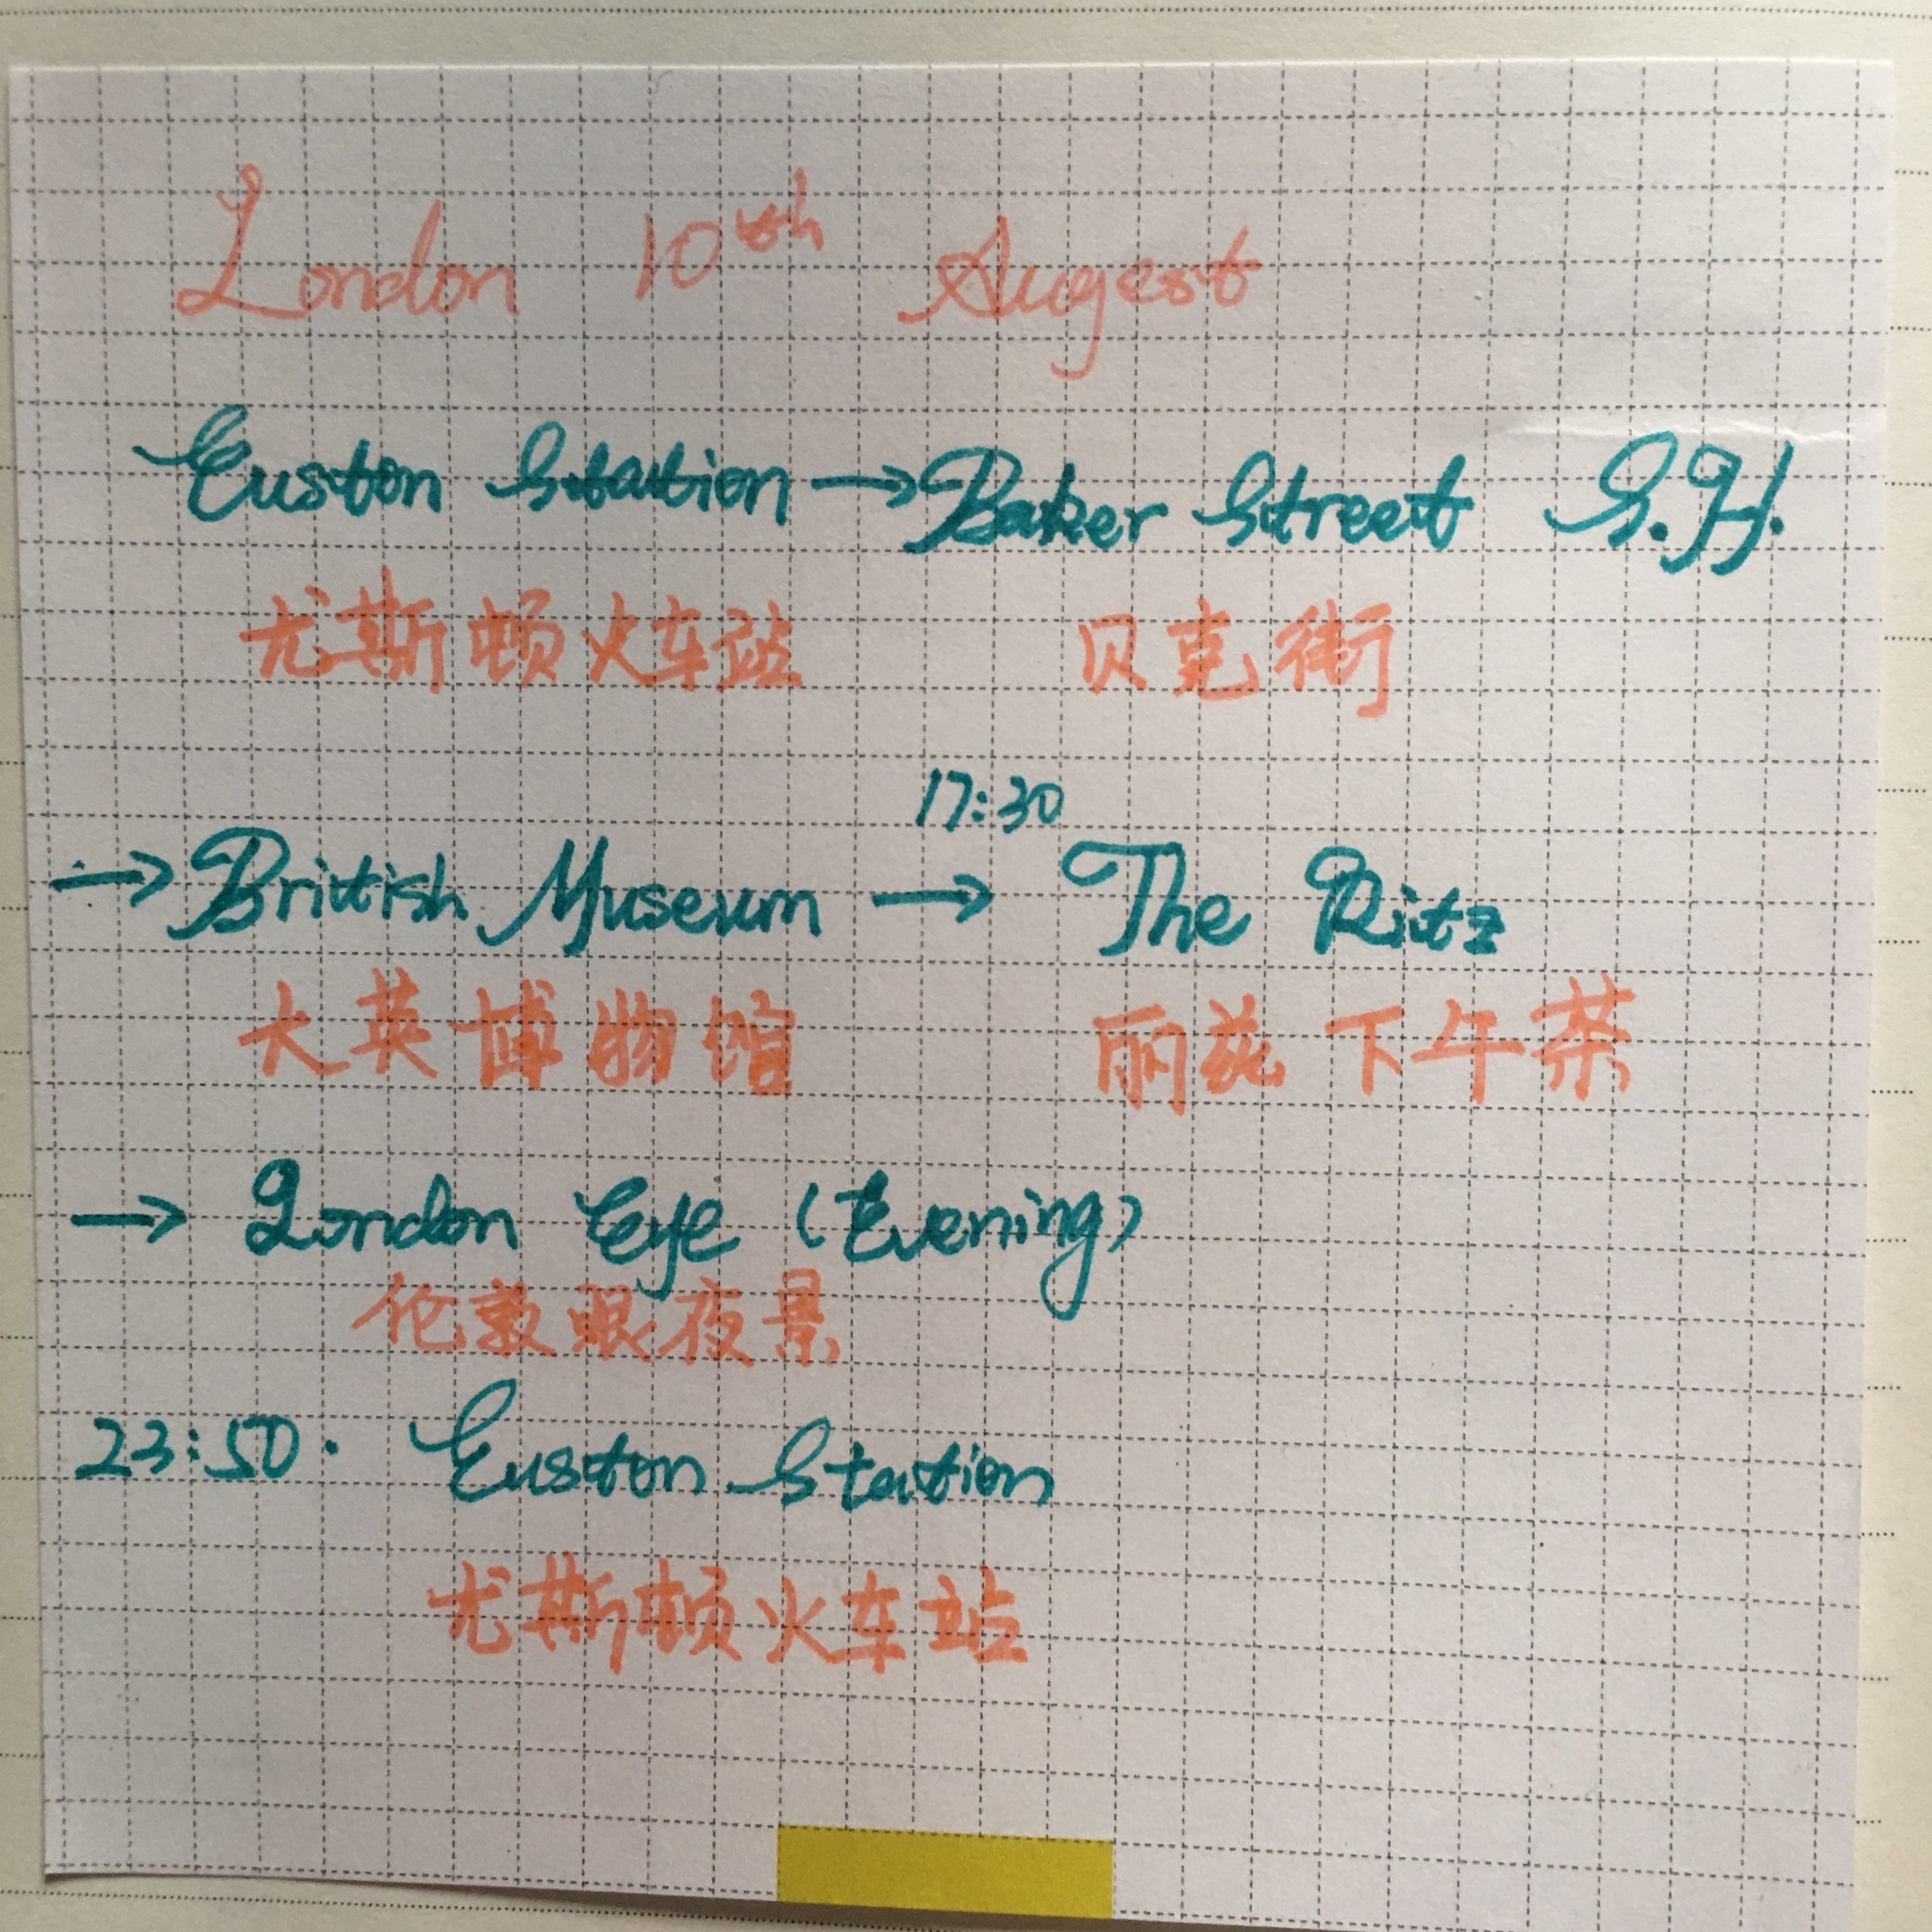 London 10th Augest
Euston Station → Baker Street S.H.
尤斯顿火车站 贝克街
17:30
→ British Museum → The Ritz
大英博物馆 丽兹下午茶
→ London Eye (Evening)
伦敦眼夜景
23:50. Euston Station
尤斯顿火车站